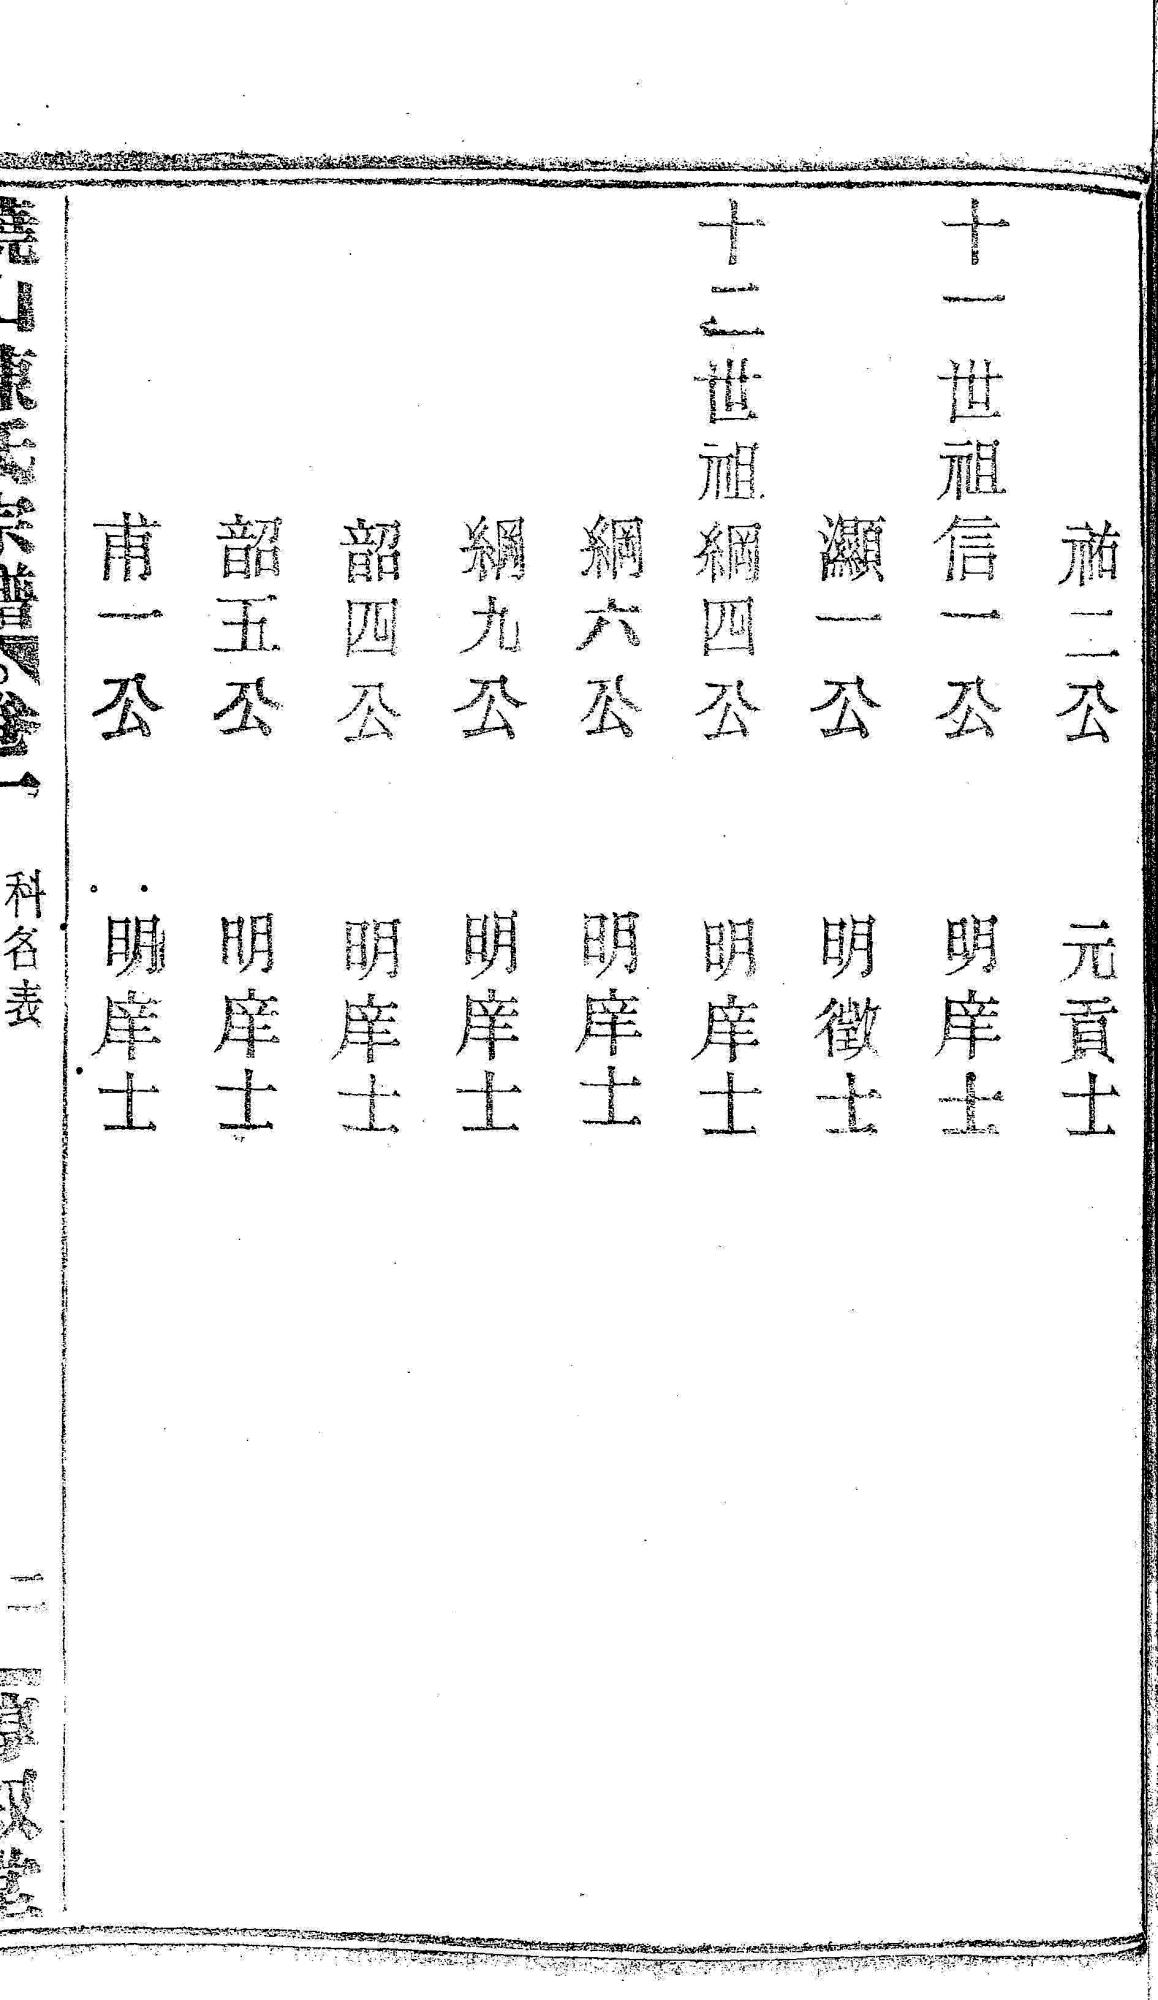 祐二公 元貢士
十一世祖 信一公 明庠士
灝一公 明徵士
十二世祖 綱四公 明庠士
綱六公 明庠士
綱九公 明庠士
韶四公 明庠士
韶五公 明庠士
甫一公 明庠士
山陳氏宗譜 卷一 科名表 二 敘堂